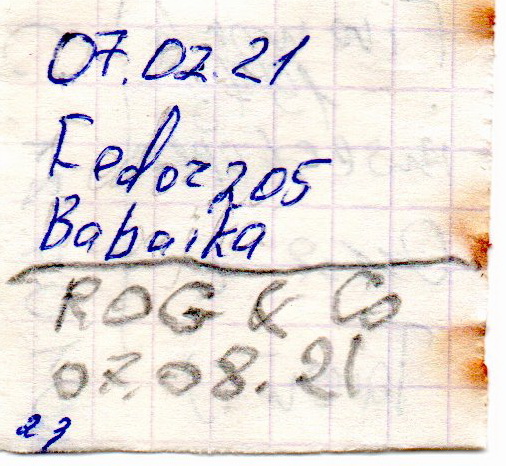 07.02.21
Fedor205
Babaika
ROG & Co
07.08.21
23